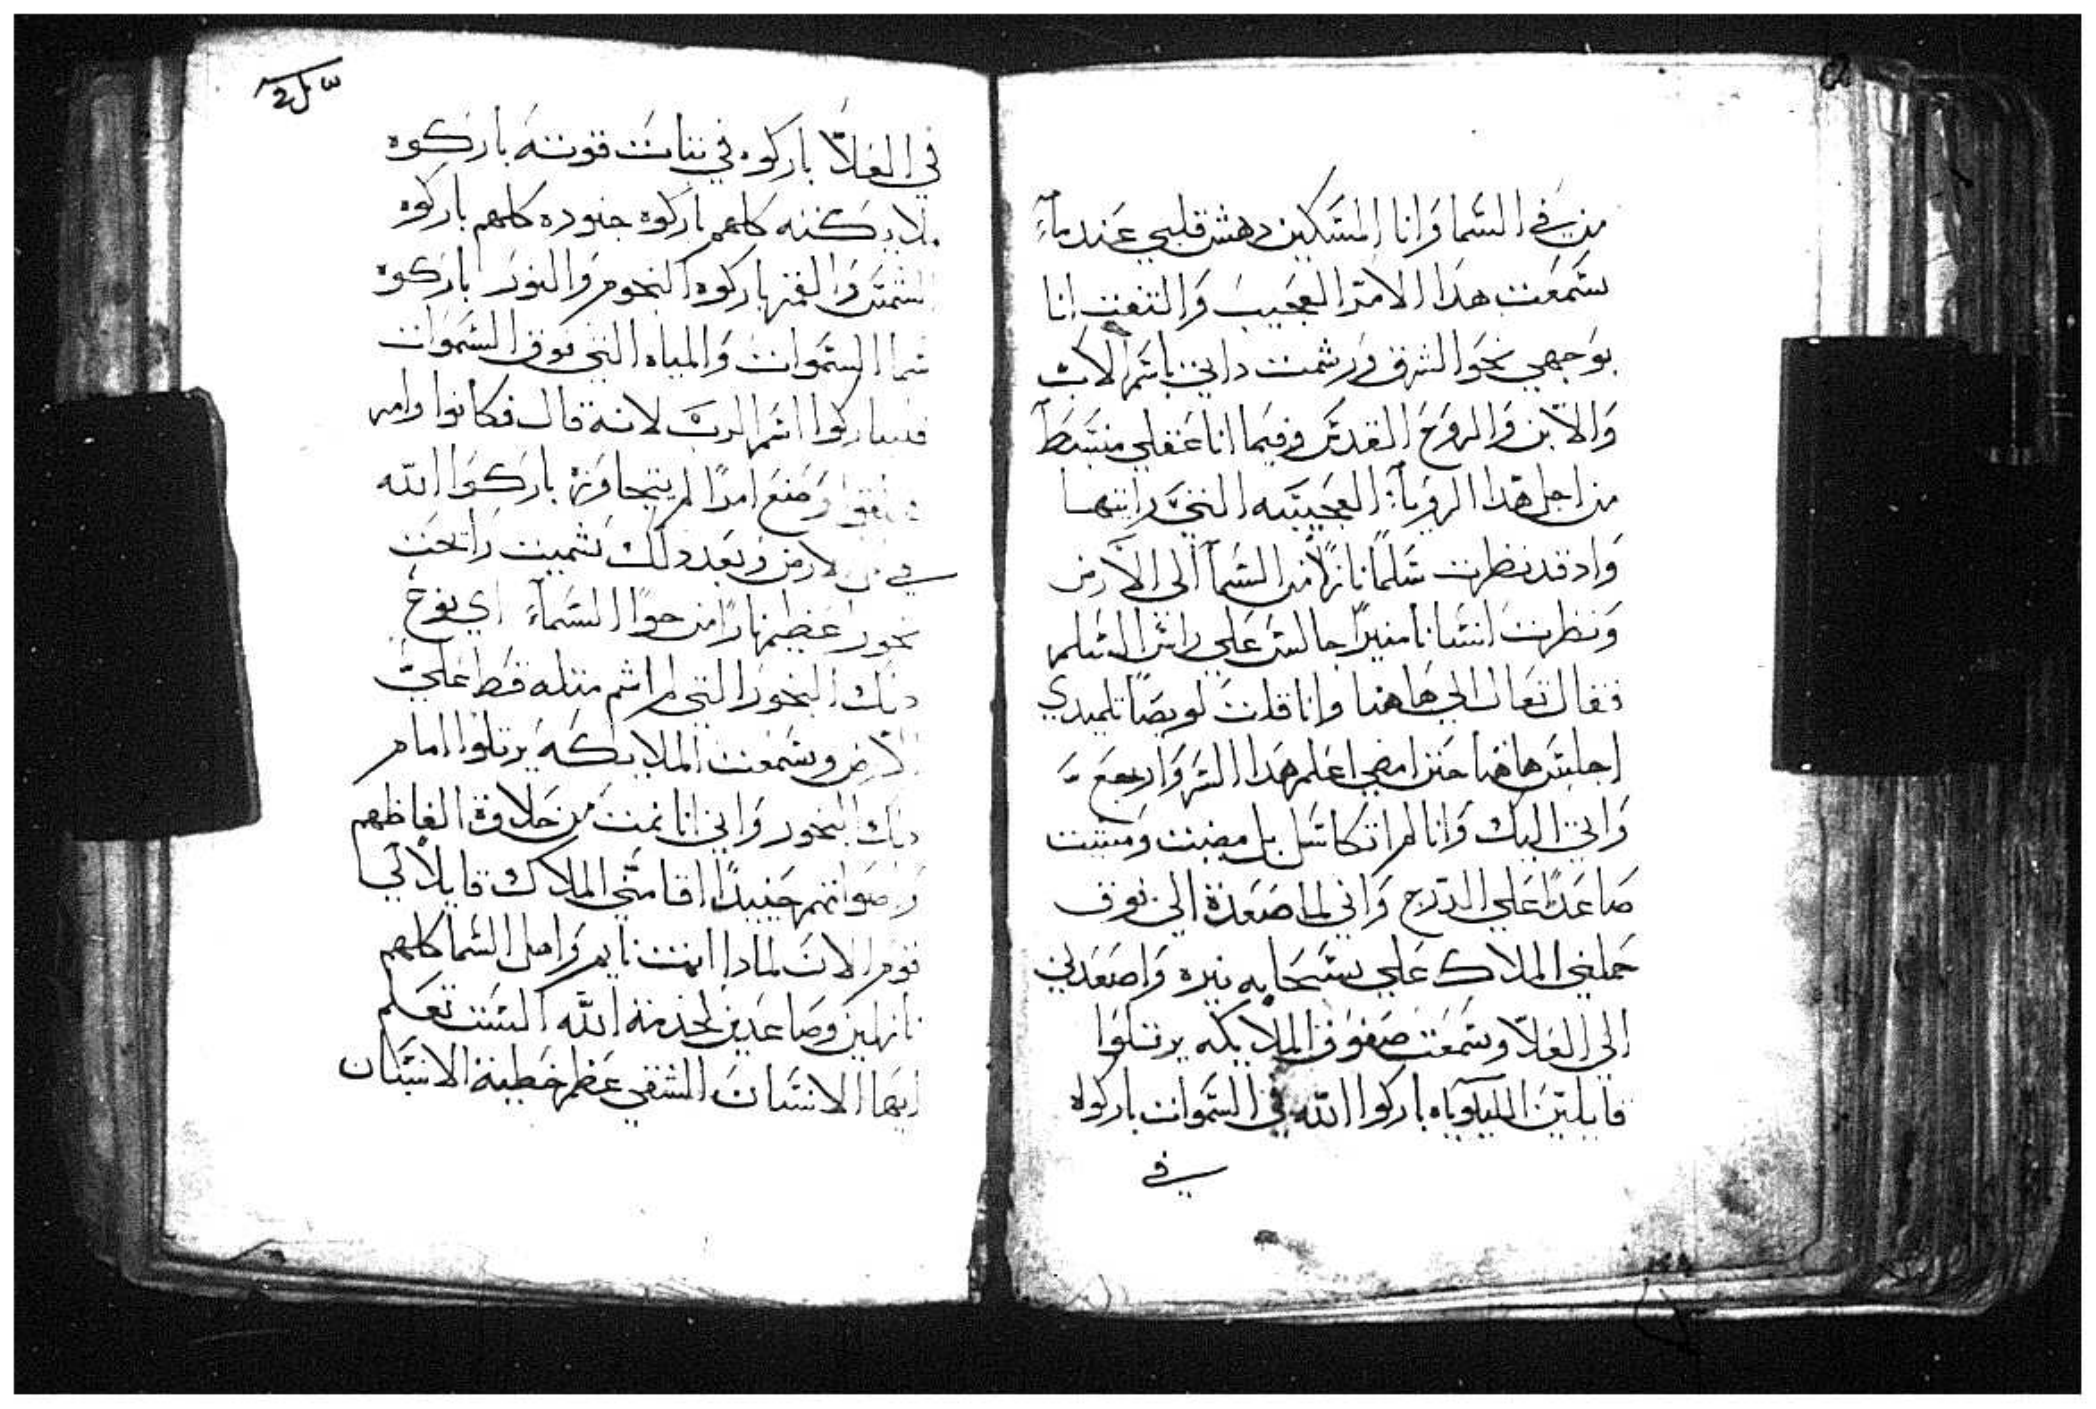 من في السما وانا المسكين دهش قلبي عندماء
سمعت هدا الامر العجيب والتفت انا
بوجهي نحو الشرق ورشمت داتي باسم الاب
والابن والروح القدس وفيما انا عقلي منبسط
من اجل هدا الروياء العجيبه التي رايتها
واد قد نظرت سلما نازلا من السما الى الارض
ونظرت انسانا منيرا جالس علي راس السلم
فقال تعال الي هاهنا وانا قلت لويصا تلميدي
اجلس هاهنا حتي امضي اعلم هدا السر وارجع
واتي اليك وانا لم اتكاسل بل مضيت ومشيت
صاعدا علي الدرج واني لما صعدة الي فوق
حملني الملاك علي سحابه نيره واصعدني
الي العلا وسمعت صفوف الملايكه يرتلوا
قايلين الليلوياه باركوا الله في السموات باركوه
في
في العلا باركوه في تبات قوته باركوه
ملايكته كلهم باركوه جنوده كلهم باركوه
الشمس والقمر باركوه النجوم والنور باركوه
سما السموات والمياه التي فوق السموات
فليباركوا اسم الرب لانه قال فكانوا وامر
فخلقوا وضع امرا لم يتجاوزه باركوا الله
في الارض وبعد دلك شميت رايحت
بخور عظيم نازل من جو السماء اي نوع
دلك البخور التي لم اشم متله قط علي
الارض وسمعت الملايكه يرتلوا امام
دلك البخور واني انا نمت من حلاوة الفاظهم
واصواتهم حينيدا اقامني الملاك قايلا لي
قوم الان لمادا انت نايم واهل السما كلهم
نازلين وصاعدين لخدمة الله الست تعلم
ايها الانسان الشقي عظم خطية الانسان